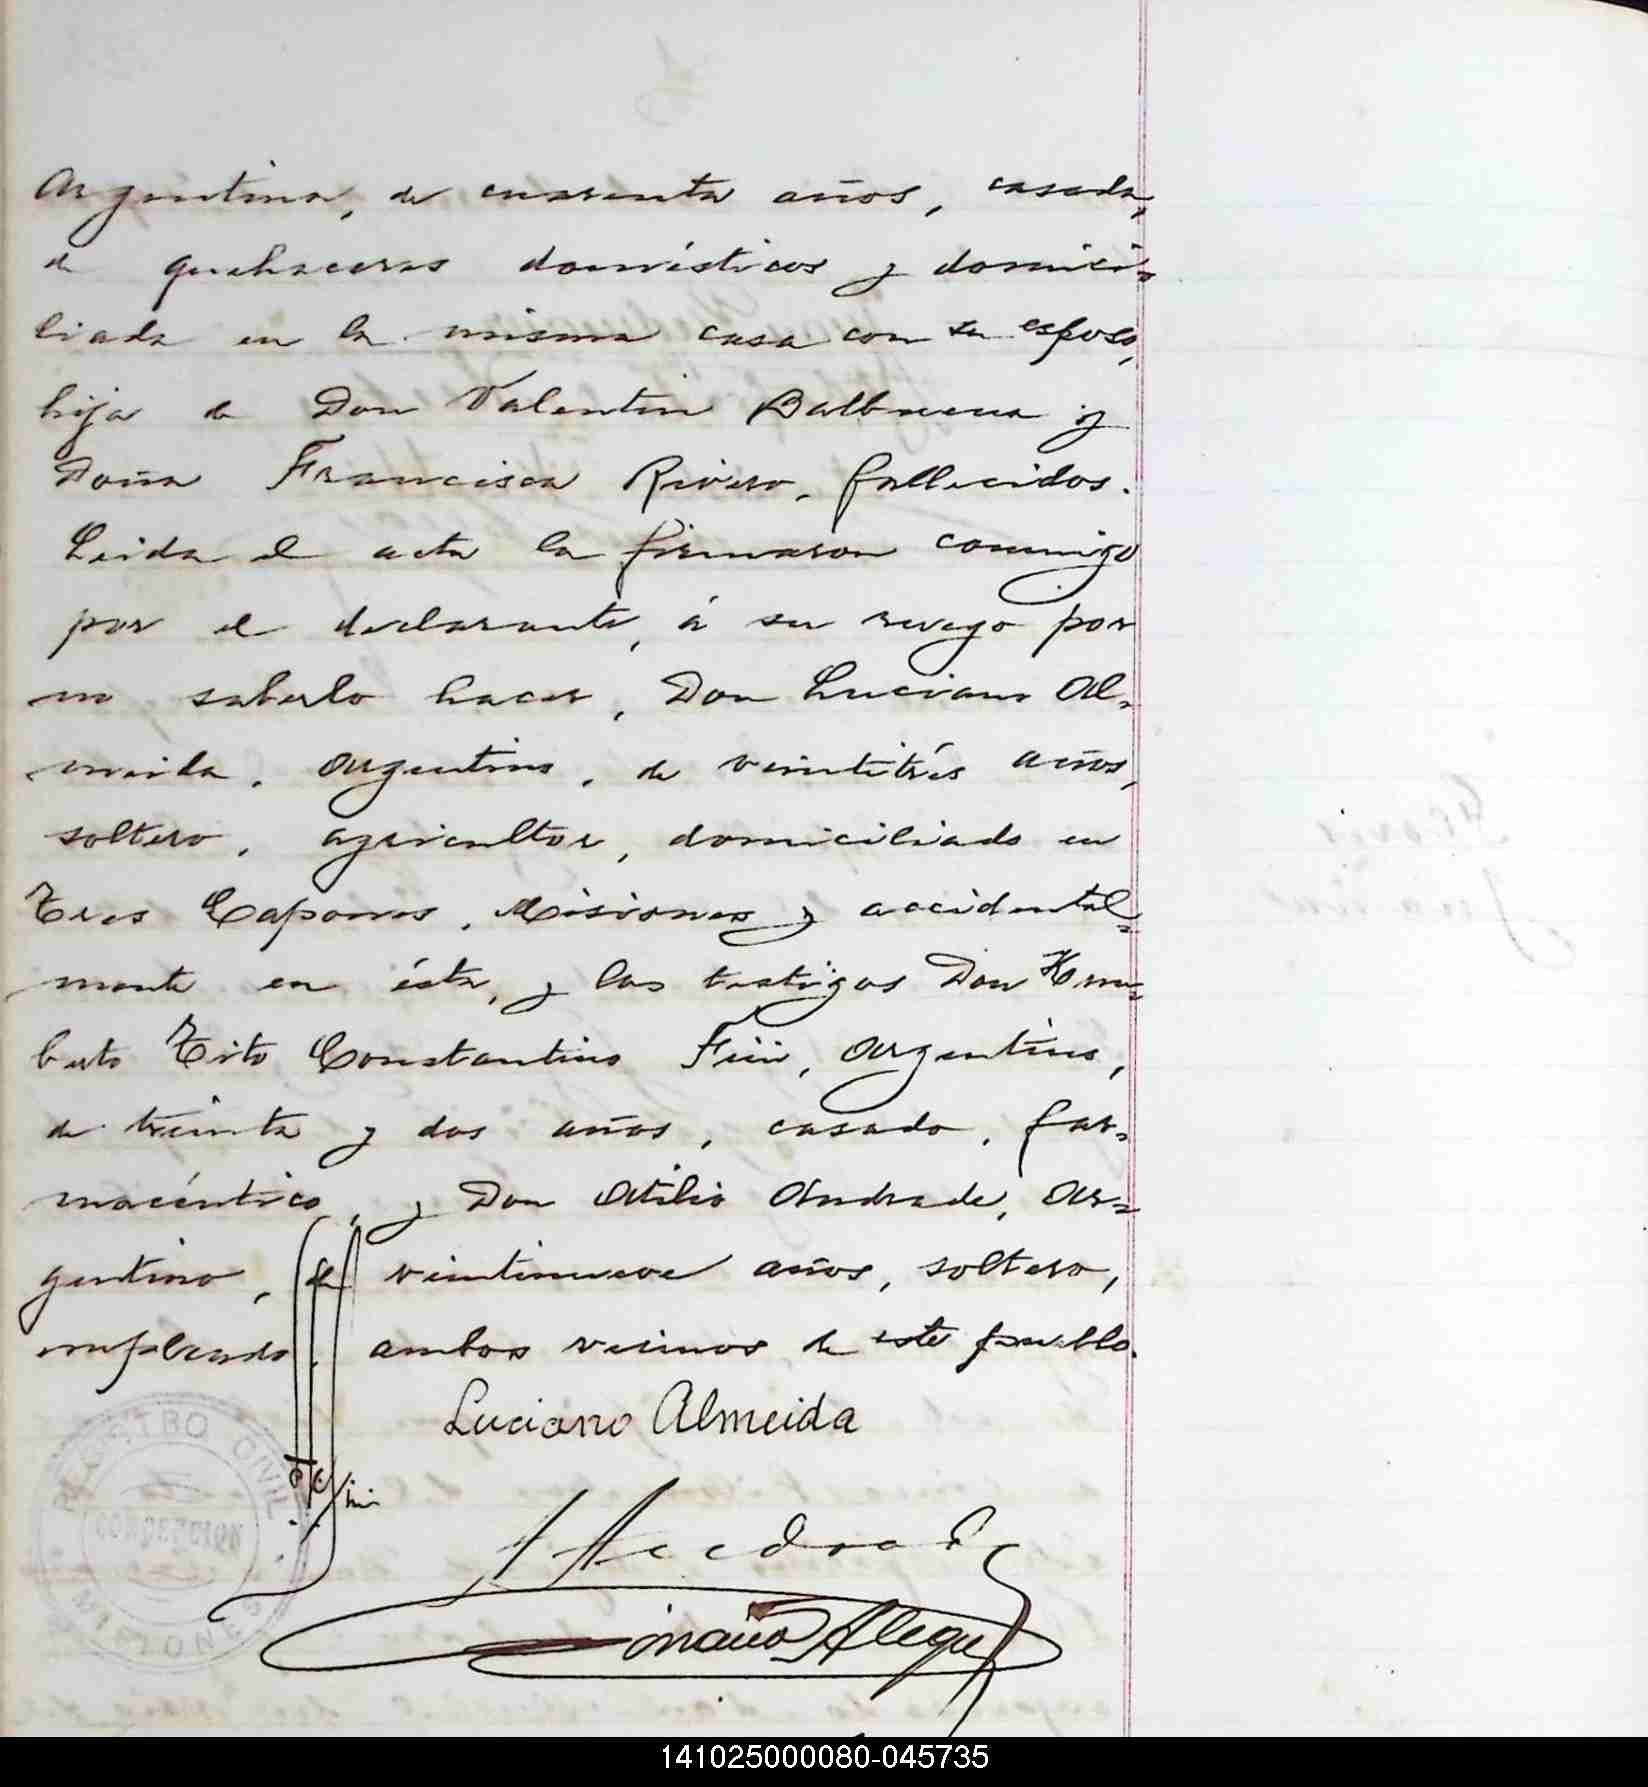 Argentina, de cuarenta años, casada,
de quehaceres domésticos y domici-
liada en la misma casa con su esposo,
hija de Don Valentin Balbuena y
Doña Francisca Rivero, fallecidos.
Leida el acta la firmaron conmigo
por el declarante, á su ruego por
no saberlo hacer, Don Luciano Al-
meida, argentino, de veintitrés años,
soltero, agricultor, domiciliado en
Tres Capones, Misiones y accidental-
mente en ésta, y los testigos Don
Tito Constantino Fini, argentino,
de treinta y dos años, casado, far-
macéutico, y Don Atilio Andrade, ar-
gentino, de veintinueve años, soltero,
empleado, ambos vecinos de este pueblo.
Luciano Almeida
REGISTRO CIVIL
CONCEPCION
MISIONES
Alegre
141025000080-045735